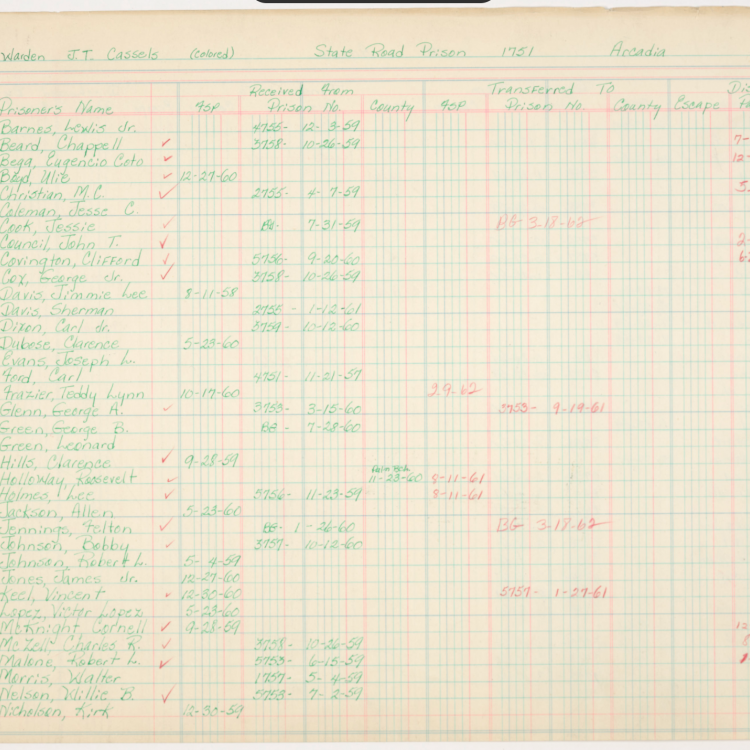 Warden J.T. Cassels (Colored) State Road Prison 1751 Arcadia
Received From Transferred To Dis
Prisoners Name FSP Prison No. County FSP Prison No. County Escape
Barnes, Lewis Jr. 4755- 12- 3-59
Beard, Chappell ✓ 3758- 10-26-59 7-
Bega, Eugencio Coto ✓ 12-
Boyd, Ulic ✓ 12-27-60
Christian, M.C. ✓ 2755- 4- 7-59 5
Coleman, Jesse C.
Cook, Jessie ✓ BG- 7-31-59 BG- 3-18-62
Council, John T. ✓ 2-
Covington, Clifford ✓ 5756- 9-20-60 6-
Cox, George Jr. ✓ 3758- 10-26-59
Davis, Jimmie Lee 8-11-58
Davis, Sherman 2755 - 1-12-61
Dixon, Carl Jr. 3759- 10-12-60
Dubose, Clarence 5-23-60
Evans, Joseph L.
Ford, Carl 4751- 11-21-57
Frazier, Teddy Lynn 10-17-60 2.9.62
Glenn, George A. ✓ 3753- 3-15-60 3753- 9-19-61
Green, George B. BG- 7-28-60
Green, Leonard
Hills, Clarence ✓ 9-28-59
Holloway, Roosevelt ✓ Palm Bch. 11-23-60 8-11-61
Holmes, Lee ✓ 5756- 11-23-59 8-11-61
Jackson, Allen 5-23-60
Jennings, Felton ✓ BG- 1-26-60 BG 3-18-62
Johnson, Bobby ✓ 3757- 10-12-60
Johnson, Robert L. 5- 4-59
Jones, James Jr. 12-27-60
Keel, Vincent ✓ 12-30-60 5757- 1-27-61
Lopez, Victor Lopez 5-23-60
McKnight, Cornell ✓ 9-28-59 12
McZell, Charles R. ✓ 3758- 10-26-59
Malone, Robert L. ✓ 5753- 6-15-59
Morris, Walter 1757- 5- 4-59
Nelson, Willie B. ✓ 5753- 7- 2-59
Nicholson, Kirk 12-30-59